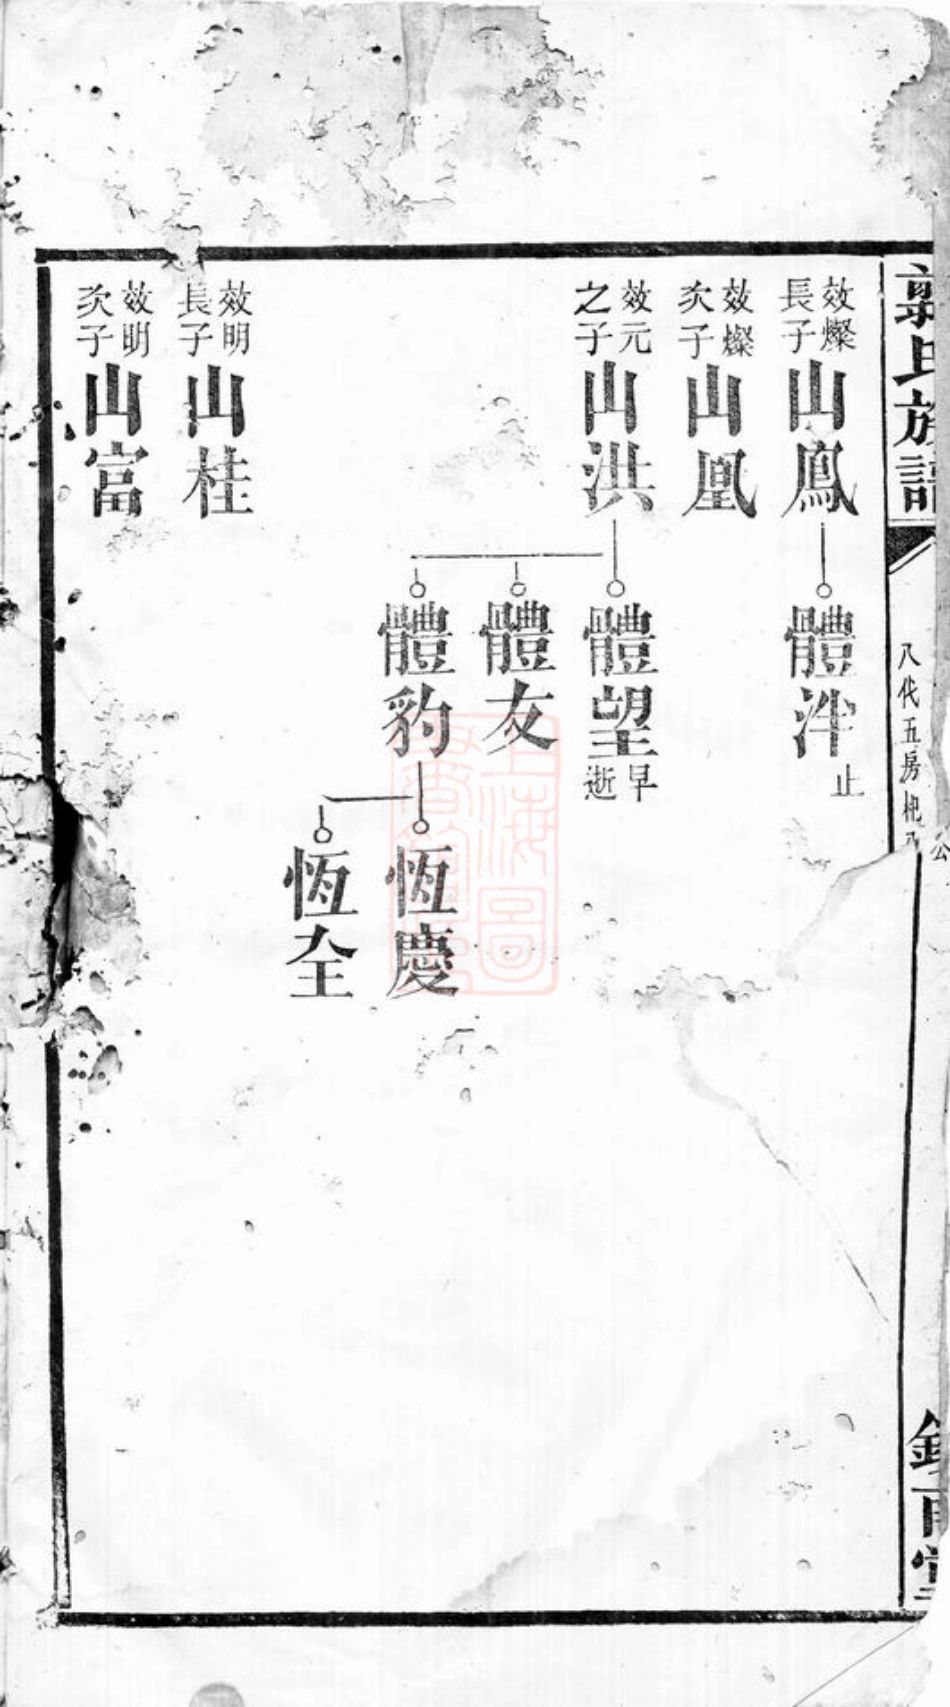 郭氏族譜
八代五房
公
效燦長子山鳳
體泮止
效燦次子山凰
效元之子山洪
體望早逝
體友
體豹
恆慶
恆全
效明長子山桂
效明次子山富
上海圖